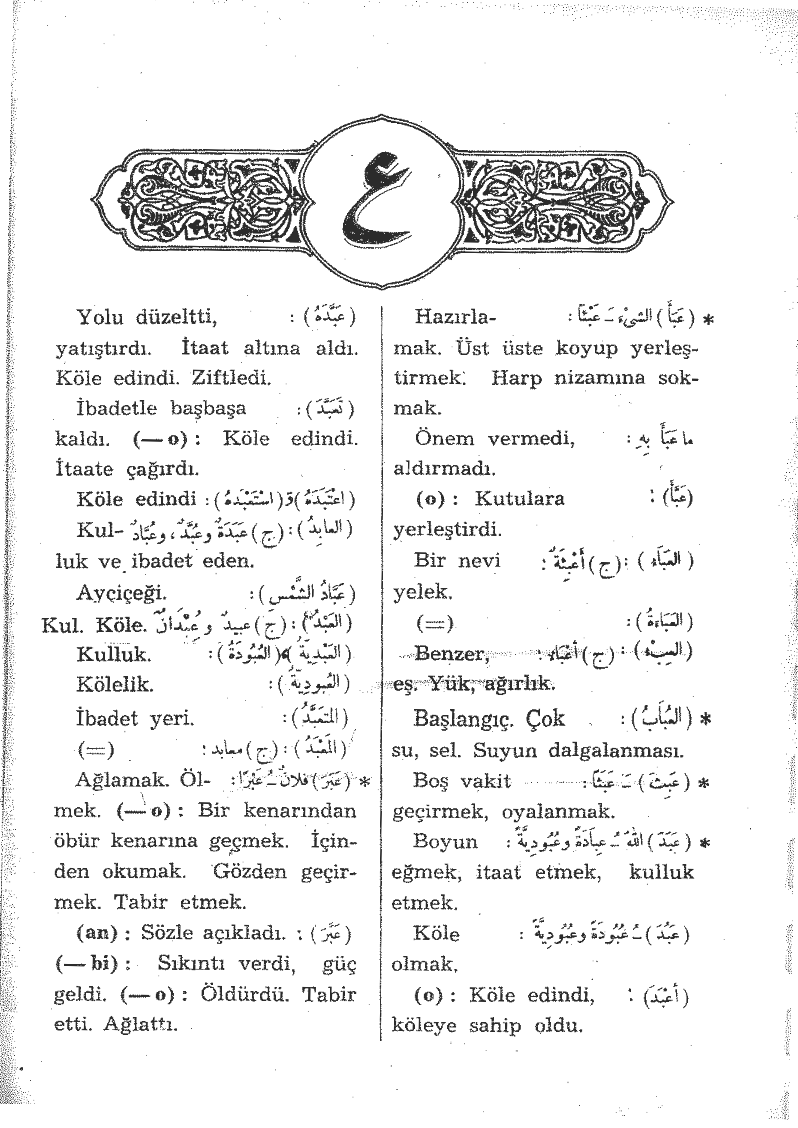 ع
Hazırla- : (عَبَأَ) الشيْءَ ـَ عَبْئًا *
mak. Üst üste koyup yerleş-
tirmek. Harp nizamına sok-
mak.
Önem vermedi, : ما عَبَأَ بِهِ
aldırmadı.
(o) : Kutulara : (عَبَّأَ)
yerleştirdi.
Bir nevi : (العَبَاء) : (ج) أَعْبِئَةٌ
yelek.
(=) : (العَبَاءَةُ)
Benzer, : (العِبْءُ) : (ج) أَعْبَاء
eş. Yük, ağırlık.
Başlangıç. Çok : (العُبَابُ) *
su, sel. Suyun dalgalanması.
Boş vakit : (عَبِثَ) ـَ عَبَثًا *
geçirmek, oyalanmak.
Boyun : (عَبَدَ) اللهَ ـُ عِبادَةً وعُبُودِيةً *
eğmek, itaat etmek, kulluk
etmek.
Köle : (عَبُدَ) ـُ عُبُودَةً وعُبُودِيةً
olmak.
(o) : Köle edindi, : (أَعْبَدَ)
köleye sahip oldu.
Yolu düzeltti, : (عَبَّدَهُ)
yatıştırdı. İtaat altına aldı.
Köle edindi. Ziftledi.
İbadetle başbaşa : (تَعَبَّدَ)
kaldı. (—o) : Köle edindi.
İtaate çağırdı.
Köle edindi : (اعْتَبَدَهُ) و (اسْتَعْبَدهُ)
Kul- (العابِدُ) : (ج) عَبَدَةٌ وعُبَّدٌ، وعُبَّادٌ
luk ve ibadet eden.
Ayçiçeği. : (عَبَّادُ الشَّمْس)
Kul. Köle. (العَبْدُ) : (ج) عَبيدٌ وعُبْدَانٌ
Kulluk. : (العَبْدِيةُ) (العُبُودَةُ)
Kölelik. : (العُبودِيةُ)
İbadet yeri. : (المُتَعَبَّدُ)
(=) : (المَعْبَدُ) : (ج) معابد
Ağlamak. Öl- : (عَبَرَ) فلانٌ ـُ عَبْرًا *
mek. (—o) : Bir kenarından
öbür kenarına geçmek. İçin-
den okumak. Gözden geçir-
mek. Tabir etmek.
(an) : Sözle açıkladı. : (عَبَّرَ)
(—bi) : Sıkıntı verdi, güç
geldi. (—o) : Öldürdü. Tabir
etti. Ağlattı.